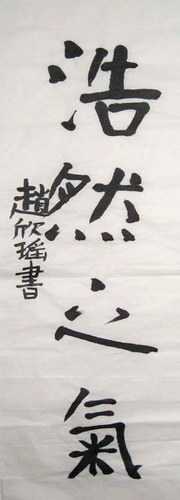 浩然之氣
趙欣瑤書